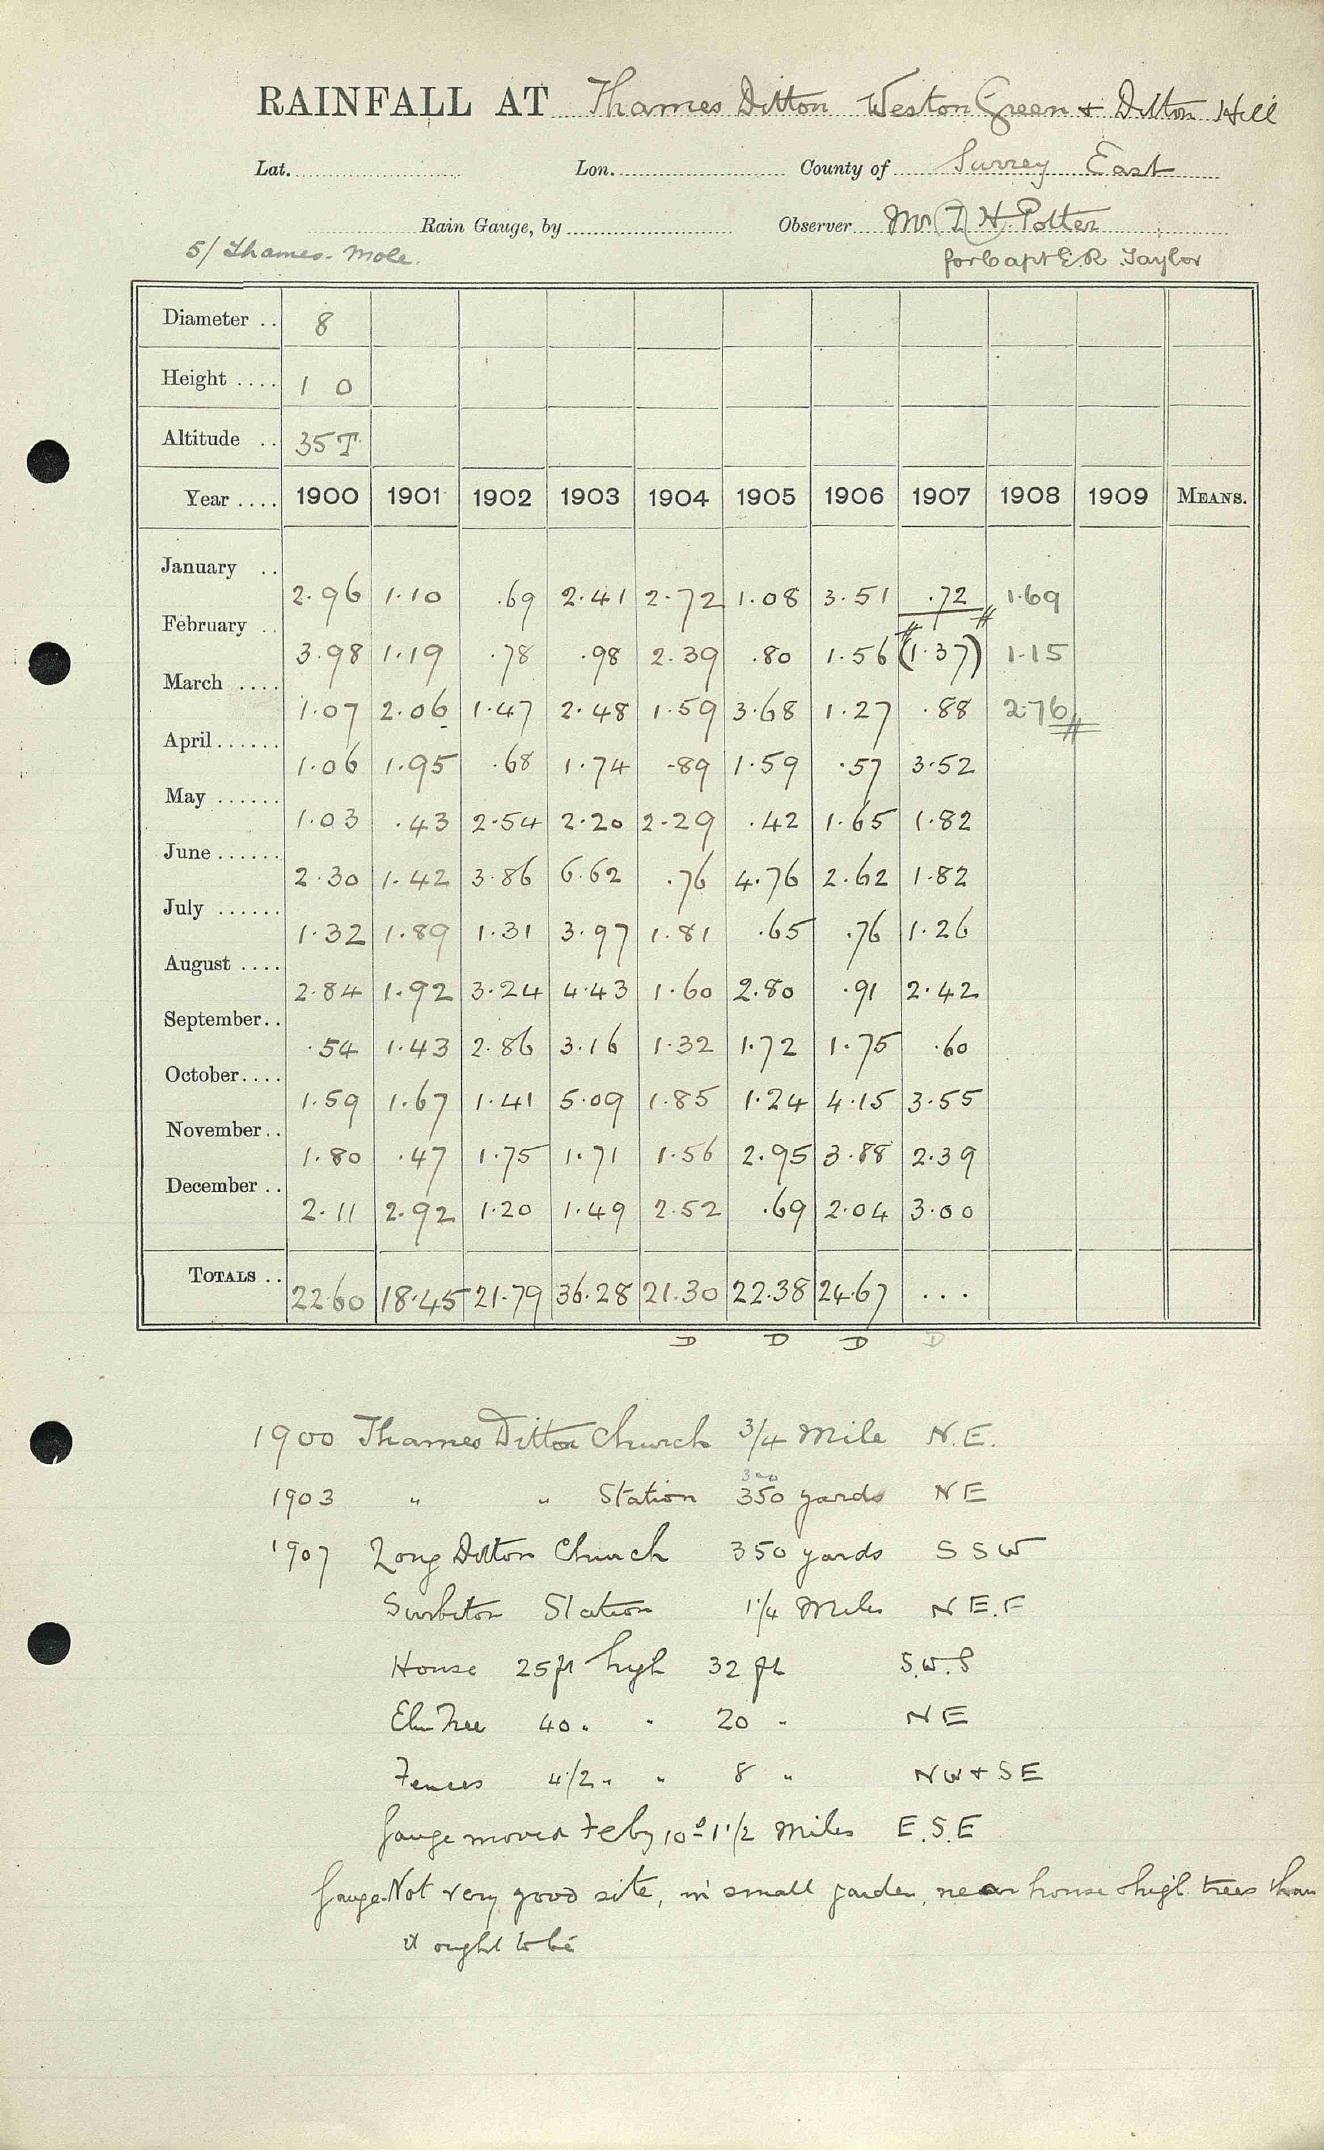 RAINFALL AT Thames Ditton Weston Green & Ditton Hill
Lat. Lon. County of Surrey East
Rain Gauge, by Observer Mr T H Potter
5/ Thames-Mole. for Capt E.R. Taylor
Diameter .. 8
Height .... 1 0
Altitude .. 35T
Year .... 1900 1901 1902 1903 1904 1905 1906 1907 1908 1909 MEANS.
January .. 2.96 1.10 .69 2.41 2.72 1.08 3.51 .72 1.69
February .. 3.98 1.19 .78 .98 2.39 .80 1.56 (1.37) 1.15
March .... 1.07 2.06 1.47 2.48 1.59 3.68 1.27 .88 2.76
April...... 1.06 1.95 .68 1.74 .89 1.59 .57 3.52
May ...... 1.03 .43 2.54 2.20 2.29 .42 1.65 1.82
June...... 2.30 1.42 3.86 6.62 .76 4.76 2.62 1.82
July ...... 1.32 1.89 1.31 3.97 1.81 .65 .76 1.26
August .... 2.84 1.92 3.24 4.43 1.60 2.80 .91 2.42
September.. .54 1.43 2.86 3.16 1.32 1.72 1.75 .60
October.... 1.59 1.67 1.41 5.09 1.85 1.24 4.15 3.55
November.. 1.80 .47 1.75 1.71 1.56 2.95 3.88 2.39
December .. 2.11 2.92 1.20 1.49 2.52 .69 2.04 3.00
TOTALS .. 22.60 18.45 21.79 36.28 21.30 22.38 24.67 ...
D D D D
1900 Thames Ditton Church 3/4 Mile N.E.
300
1903 " " Station 350 yards NE
1907 Long Ditton Church 350 yards SSW
Surbiton Station 1 1/4 Miles N E.E
House 25ft high 32 ft S.W.S
Elm Tree 40 " " 20 " NE
Fences 4 1/2 " " 8 " NW & SE
Gauge moved Feby 10th 1 1/2 Miles E.S.E
Gauge. Not very good site, in small garden, nearer house & high trees than
it ought to be